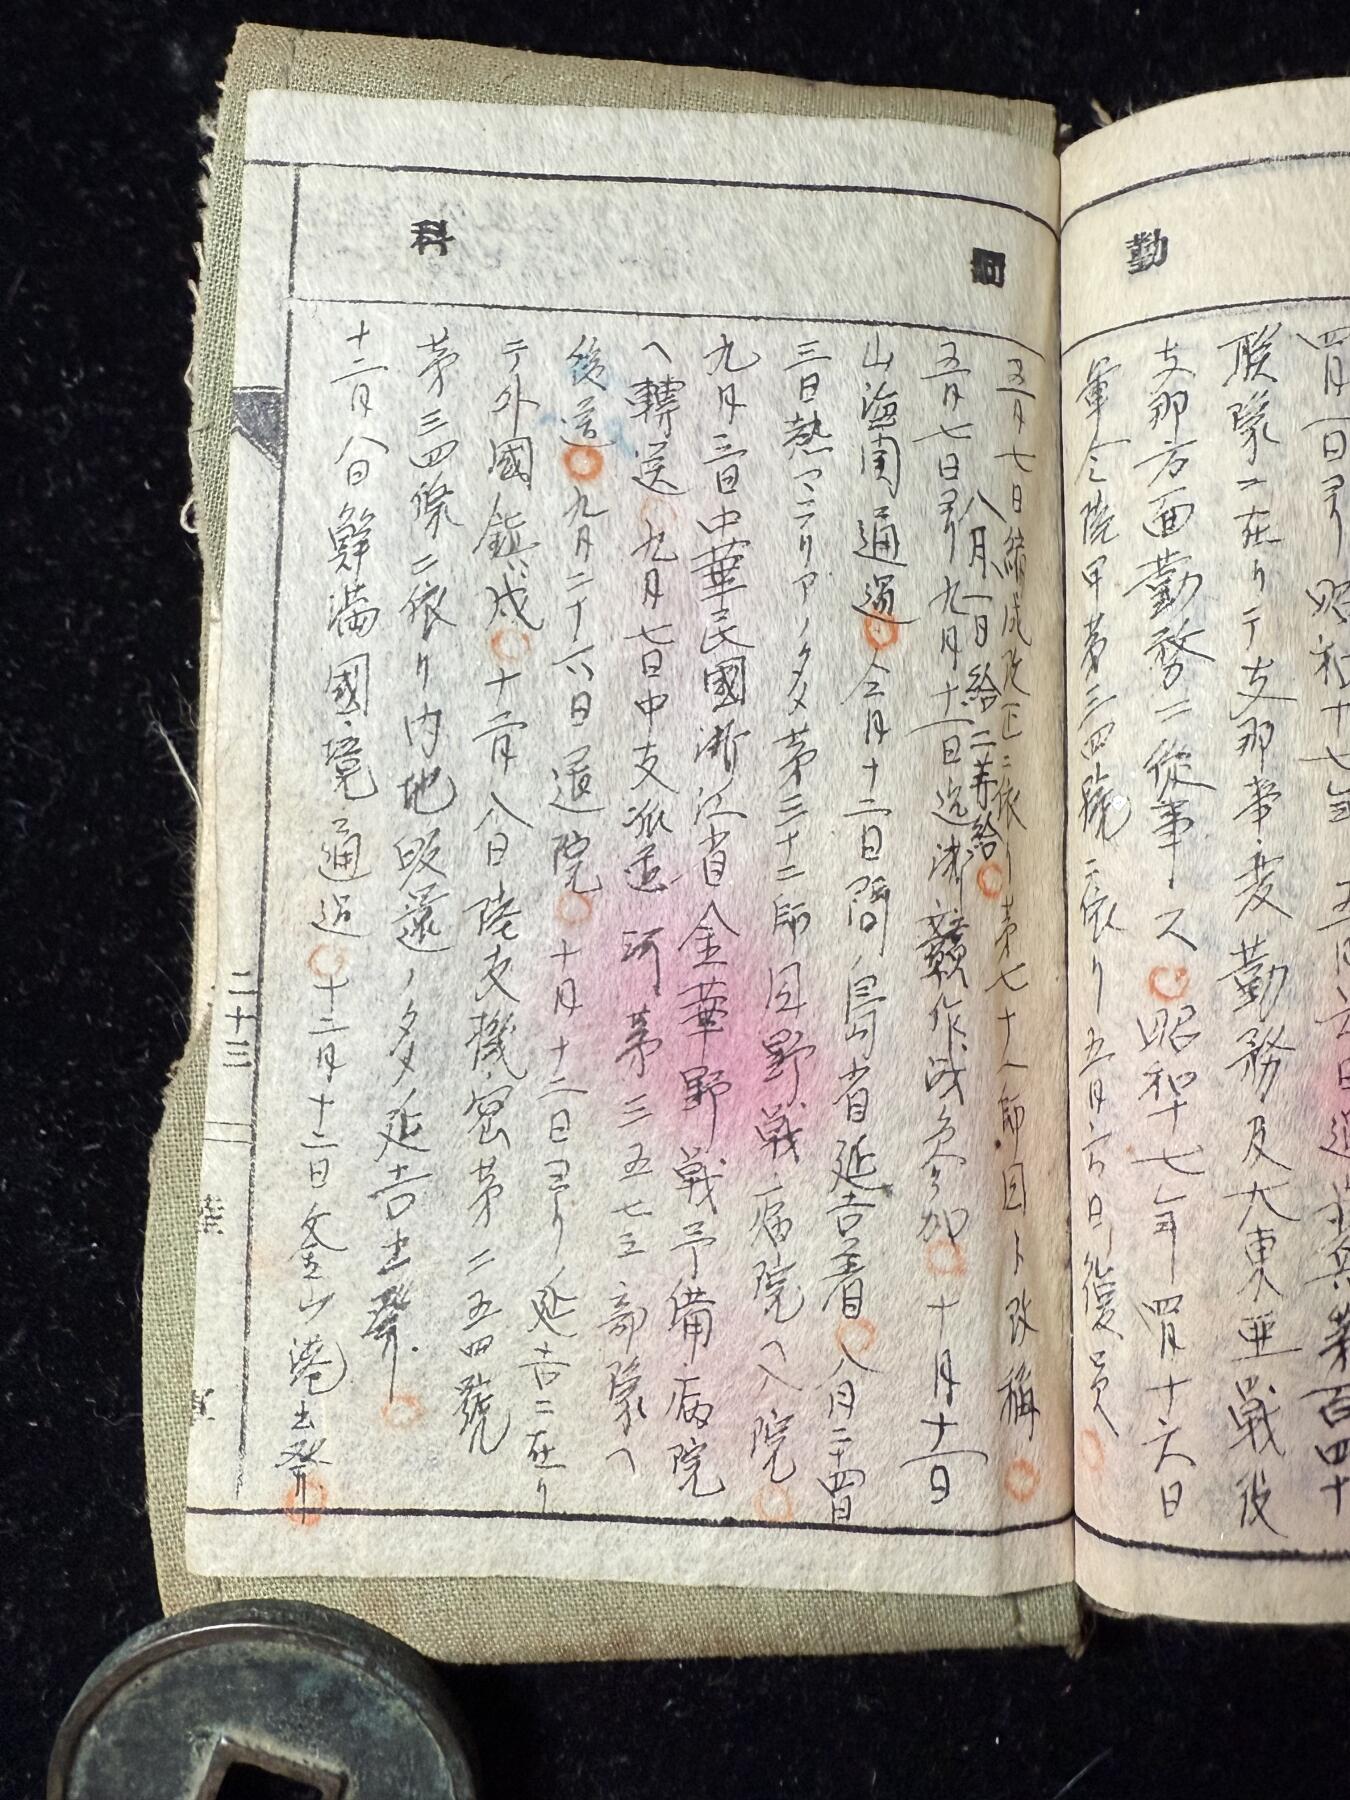 勤
四月一日ヨリ昭和十七年五月六日
聯隊ニ在リテ支那事変勤務及大東亜戦役
支那方面勤務ニ従事ス〇昭和十七年四月十六日
軍令陸甲第三四號ニ依リ五月六日復員〇
科
五月七日編成改正ニ依リ第七十人師団ト改稱〇
八月一日給二等給〇
五月七日ヨリ九月十一日迄浙贛作战参加〇十月十一日
山海関通過〇仝月十二日間島省延吉着〇八月二十四日
三日熱マラリアノタメ第三十二師団野戦病院ヘ入院〇
九月三日中華民國浙江省金華野戦予備病院
ヘ轉送〇九月七日中支派遣河第三五七三部隊ヘ
後送〇九月二十六日退院〇十月十二日ヨリ延吉ニ在リ
テ外國鎮戍〇十二月八日陸支機密第二五四號
第三四條ニ依リ内地皈還ノタメ延吉出発〇
十二月八日鮮満國境通過〇十二月十二日釜山港出発〇
二十三